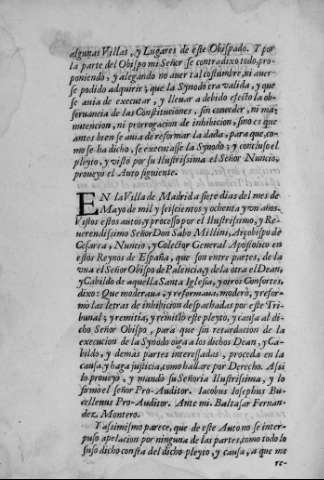 algunas Villas, y Lugares de este Obispado. Y por
la parte del Obispo mi Señor se contradixo todo, pro-
poniendo, y alegando no auer tal costumbre, ni auer-
se podido adquirir; que la Synodo era valida, y que
se auia de executar, y lleuar a debido efecto la ob-
seruancia de las Constituciones, sin conceder, ni ma-
nutencion, ni prorrogacion de inhibicion, sino es que
antes bien se auia de reformar la dada, para que, co-
mo se ha dicho, se executasse la Synodo; y concluso el
pleyto, y visto por su Ilustrissima el Señor Nuncio,
proueyò el Auto siguiente.
EN la Villa de Madrid a siete dias del mes de
Mayo de mil y seiscientos y ochenta y vn años.
Vistos estos autos, y processo por el Ilustrissimo, y Re-
uerendissimo Señor Don Sabo Millini, Arçobispo de
Cesarea, Nuncio, y Colector General Apostolico en
estos Reynos de España, que son entre partes, de la
vna el Señor Obispo de Palencia, y de la otra el Dean,
y Cabildo de aquella Santa Iglesia, y otros Consortes,
dixo: Que moderaua, y reformaua, moderò, y refor-
mò las letras de inhibicion despachadas por este Tri-
bunal; y remitia, y remitiò este pleyto, y causa al di-
cho Señor Obispo, para que sin retardacion de la
execucion de la Synodo oiga a los dichos Dean, y Ca-
bildo, y demàs partes interessadas, proceda en la
causa, y haga justicia, como hallare por Derecho. Assi
lo proueyò, y mandò su Señoria Ilustrissima, y lo
firmò el señor Pro-Auditor. Iacobus Iosephus Bu-
cellenus Pro-Auditor. Ante mi. Baltasar Fernan-
dez Montero.
Y assimismo parece, que de este Auto no se inter-
puso apelacion por ninguna de las partes, como todo lo
suso dicho consta del dicho pleyto, y causa, a que me
re-